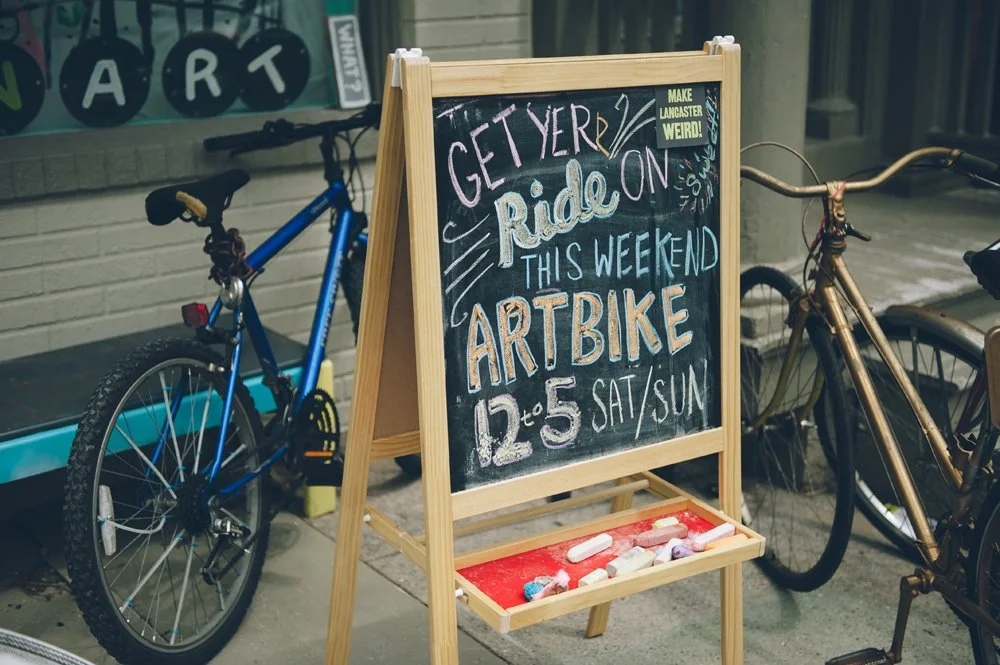 ART
WHAT?
MAKE
LANCASTER
WEIRD!
GET YER
ON
Ride
THIS WEEKEND
ARTBIKE
12 to 5 SAT/SUN